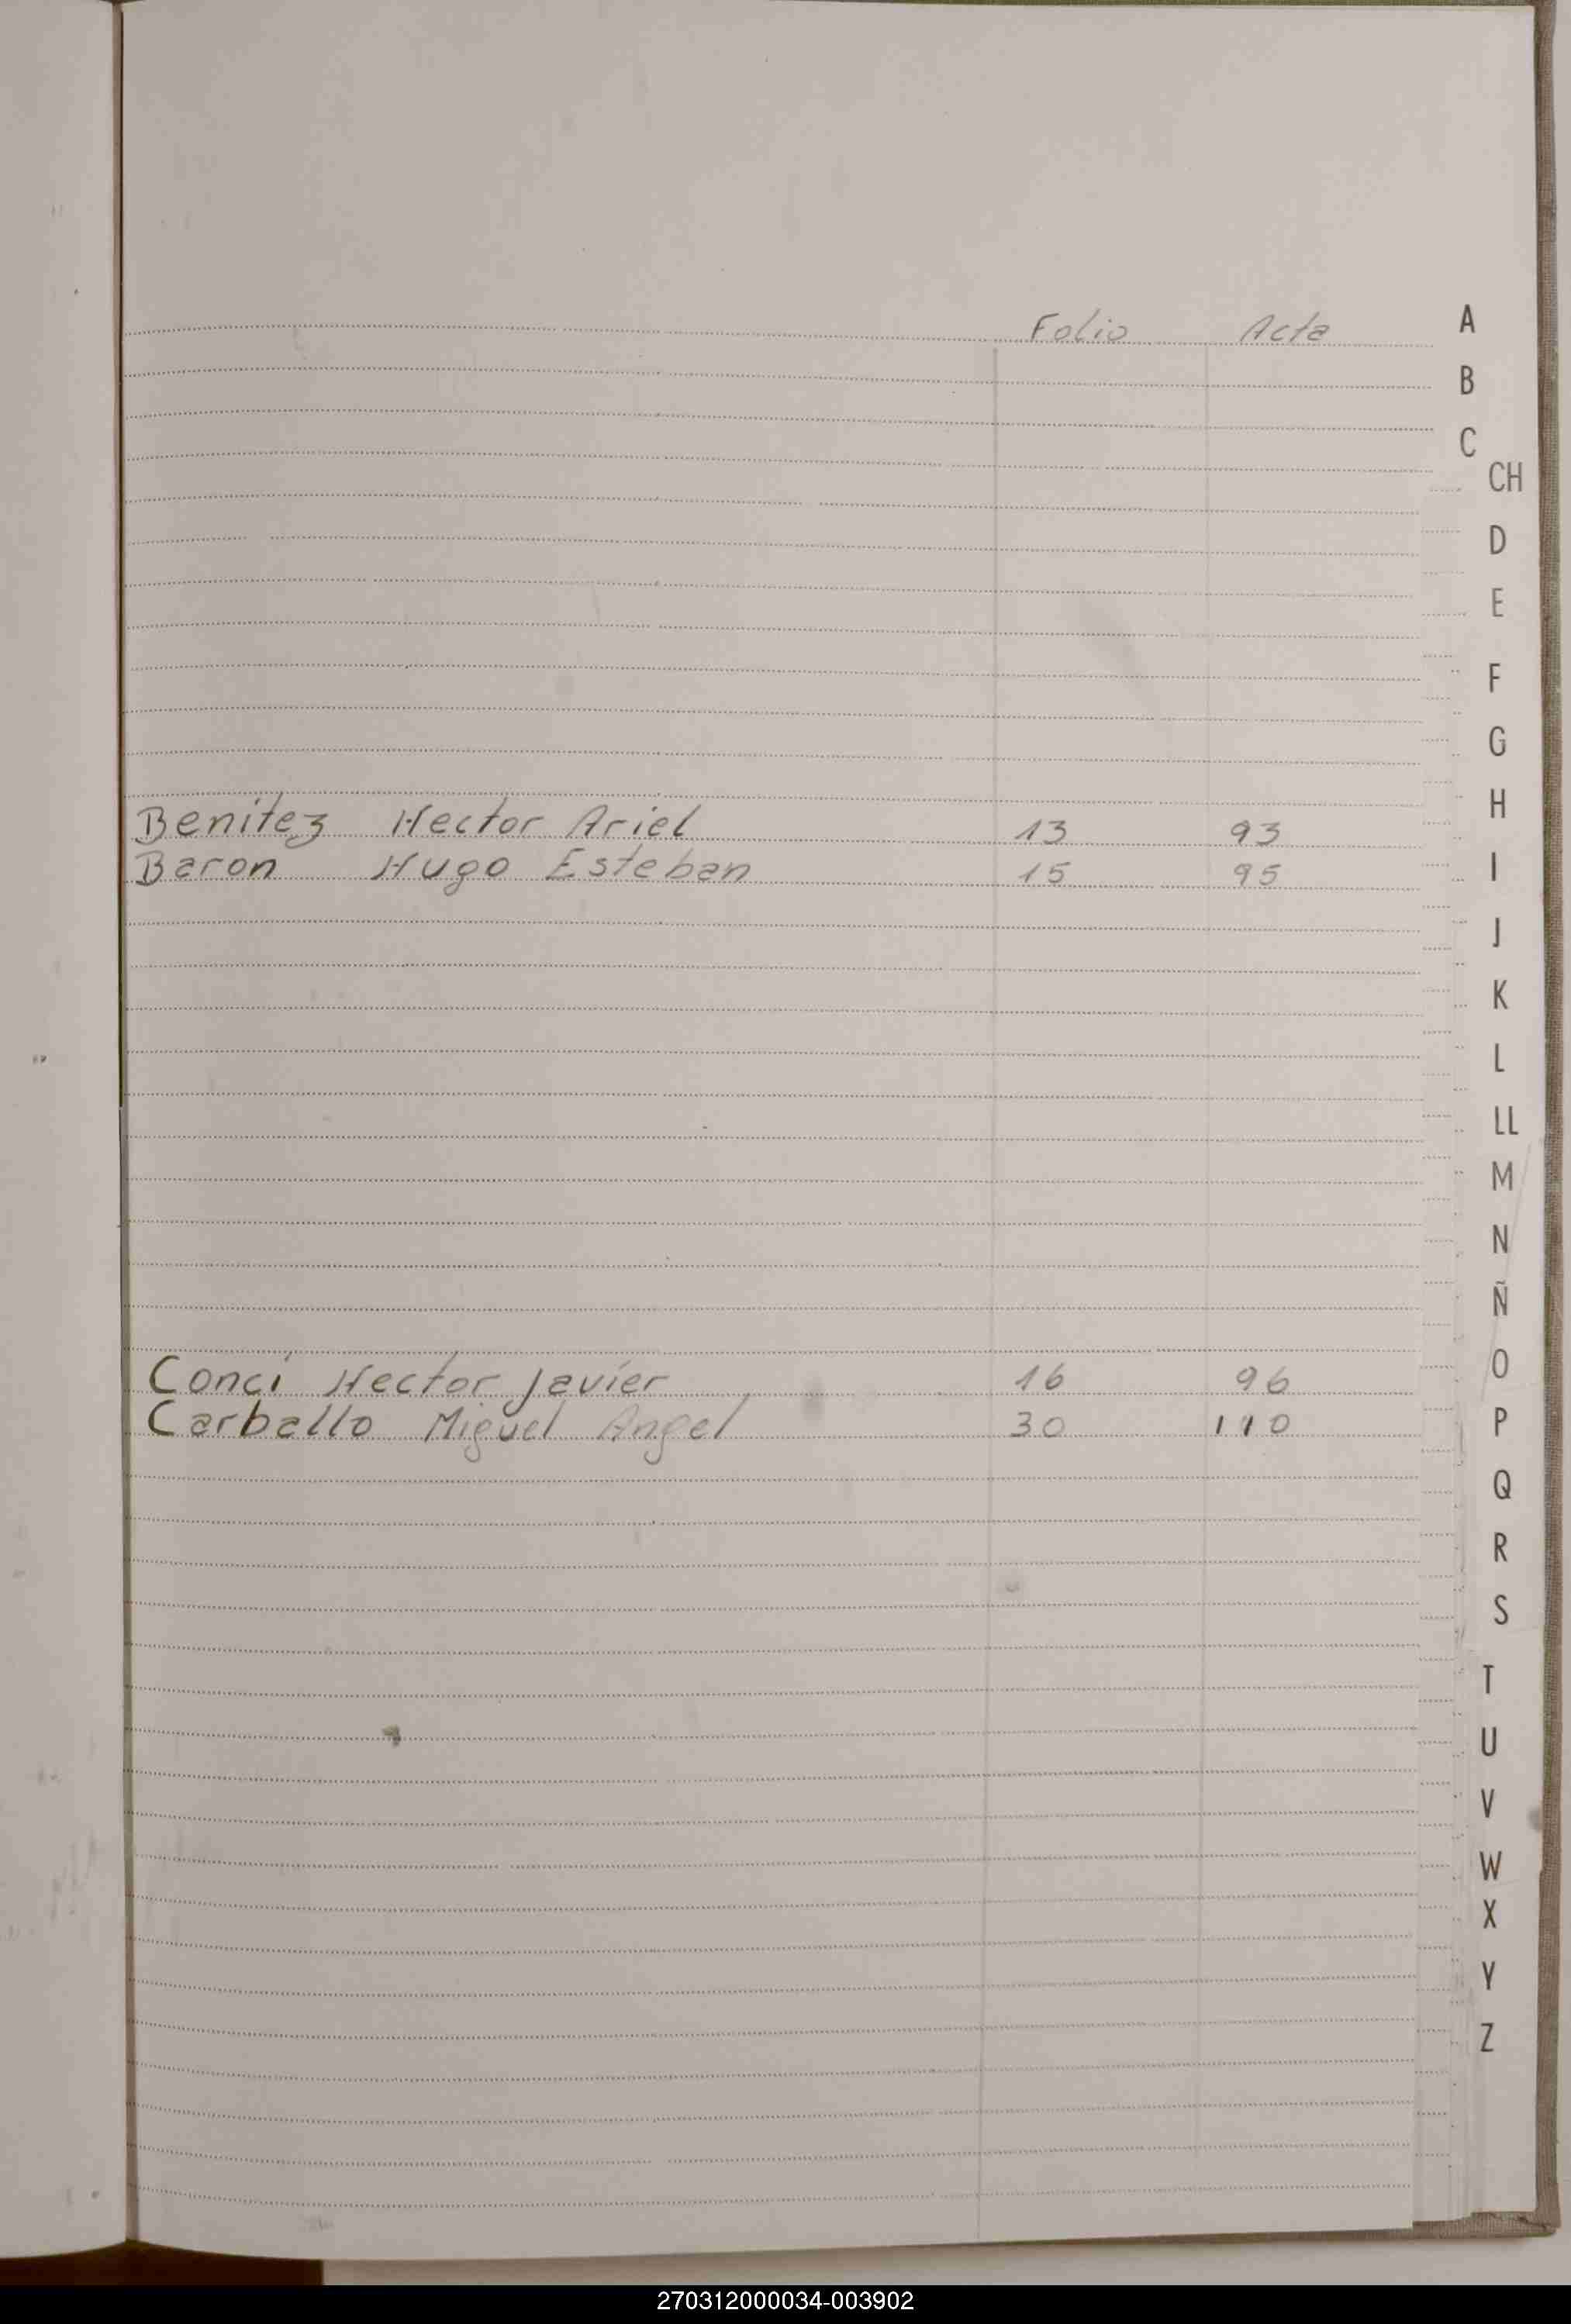 Folio Acta
A
B
C
CH
D
E
F
G
H
Benitez Hector Ariel 13 93
Baron Hugo Esteban 15 95
I
J
K
L
LL
M
N
Ñ
Conci Hector Javier 16 96
O
Carballo Miguel Angel 30 110
P
Q
R
S
T
U
V
W
X
Y
Z
270312000034-003902